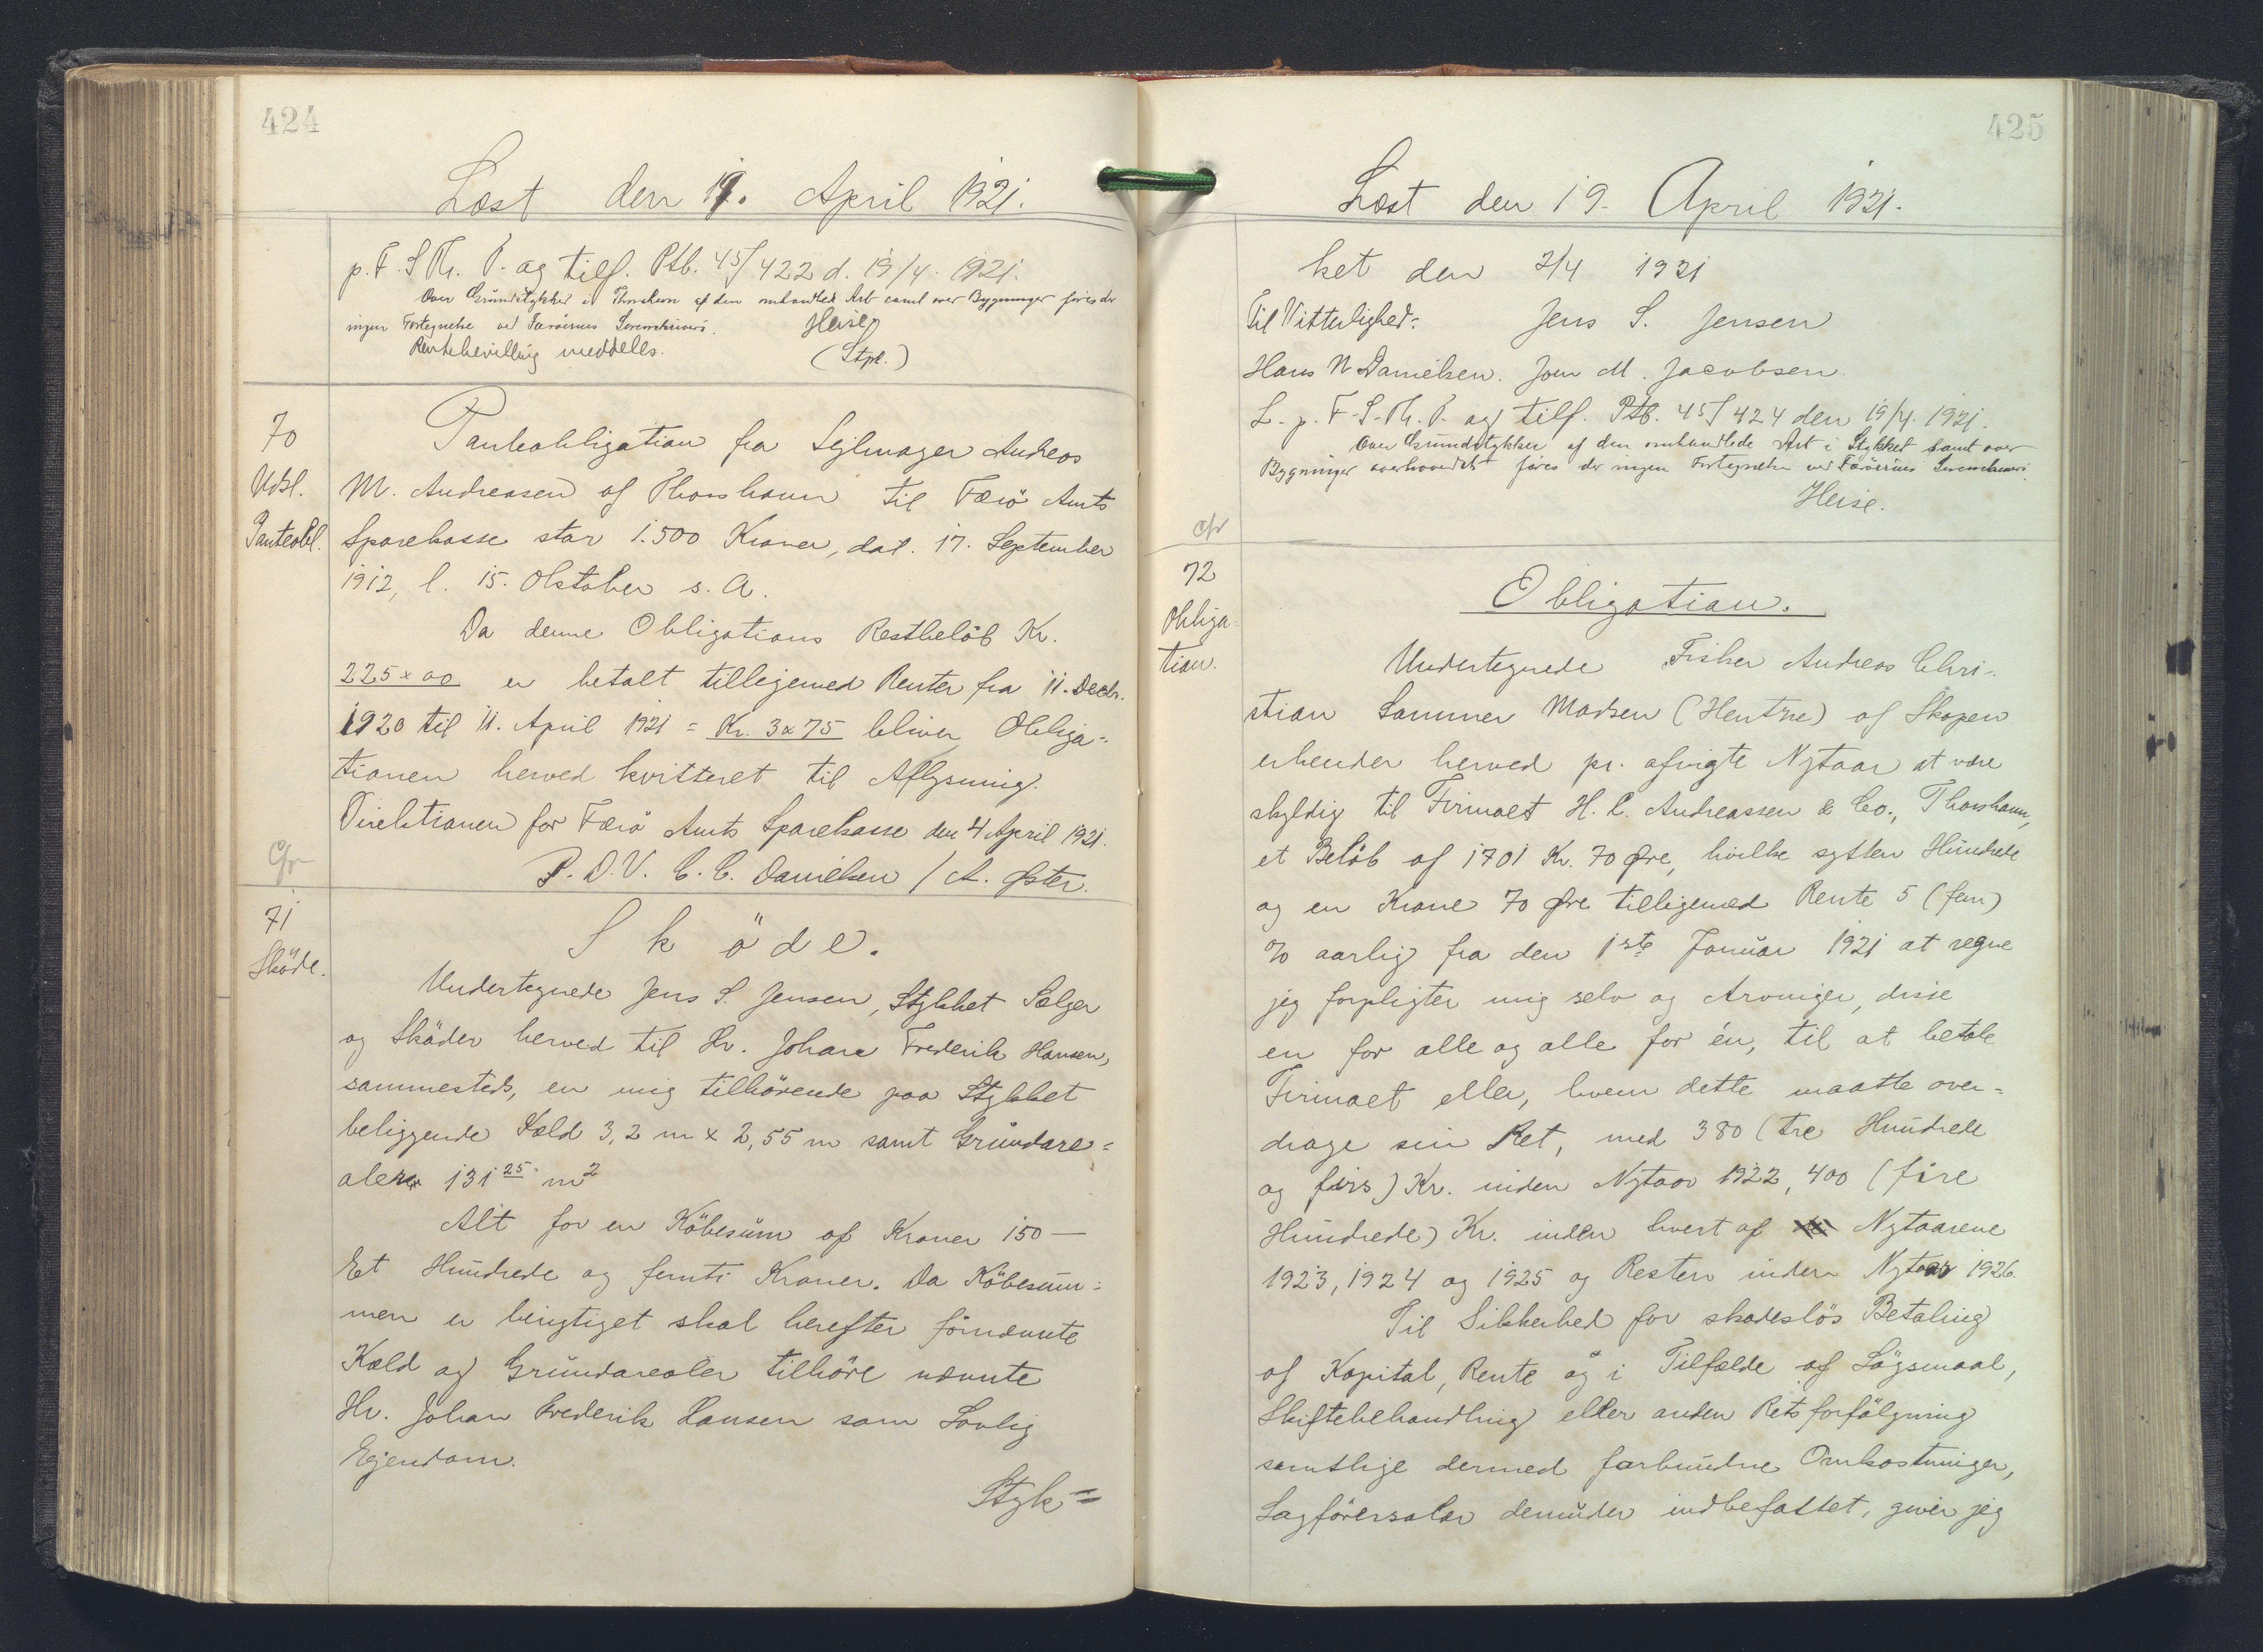 424
Læst den 19. April 1921.
p. F. S. Th. P. og tilf. Ptb. 45/422 d. 19/4. 1921.
Over Grundstykker i Thorshavn af den omhandlede Art samt over Bygninger føres der
ingen Fortegnelse ved Færöernes Sorenskriveri. Heise
Rentebevilling meddeles. (Stpl.)
70
Udsl.
Panteobl.
Panteobligation fra Sejlmager Andreas
M. Andreasen af Thorshavn til Færö Amts
Sparekasse stor 1.500 Kroner, dat. 17. September
1912, l. 15. Oktober s. A.
Da denne Obligations Restbelöb Kr.
225 x 00 er betalt tilligemed Renter fra 11. Decbr.
1920 til 11. April 1921 = Kr. 3 x 75 bliver Obliga=
tionen herved kvitteret til Aflysning.
Direktionen for Færö Amts Sparekasse den 4 April 1921.
P. D. V. C. C. Danielsen / A. Øster.
cfr
71
Sköde.
Sköde.
Undertegnede Jens S. Jensen, Stykket Sælger
og Sköder herved til Hr. Johan Frederik Hansen,
sammesteds, en mig tilhörende paa Stykket
beliggende Kæld 3,2 m x 2,55 m samt Grundare=
aler 131 25 m2
Alt for en Köbesum af Kroner 150 —
Et Hundrede og femti Kroner. Da Köbesum=
men er berigtiget skal herefter förnævnte
Kæld og Grundarealer tilhöre nævnte
Hr. Johan Frederik Hansen som Lovlig
Ejendom.
Styk=
425
Læst den 19. April 1921.
ket den 2/4 1921
Til Vitterlighed: Jens S. Jensen
Hans N Danielsen. Joen M. Jacobsen.
L. p. F. S. Th. P. og tilf. Ptb. 45/424 den 19/4. 1921.
Over Grundstykker af den omhandlede Art i Stykket samt over
Bygninger overhovedet föres der ingen Fortegnelse ved Færöernes Sorenskriveri.
Heise.
cfr
72
Obliga-
tion.
Obligation.
Undertegnede Fisker Andreas Chri-
stian Sammer Madsen (Hentze) af Skopen
erkender herved pr. afvigte Nytaar at være
skyldig til Firmaet H. C. Andreassen & Co., Thorshavn,
et Belöb af 1701 Kr. 70 Øre, hvilke sytten Hundrede
og en Krone 70 Øre tilligemed Rente 5 (fem)
% aarlig fra den 1ste Januar 1921 at regne
jeg forpligter mig selv og Arvinger, disse
en for alle og alle for én, til at betale
Firmaet eller, hvem dette maatte over-
drage sin Ret, med 380 (tre Hundrede
og firs) Kr. inden Nytaar 1922, 400 (fire
Hundrede) Kr. inden hvert af Nytaarene
1923, 1924 og 1925 og Resten inden Nytaar 1926.
Til Sikkerhed for skadeslös Betaling
af Kapital, Rente og i Tilfælde af Sögsmaal,
Skiftebehandling eller anden Retsforfölgning
samtlige dermed forbundne Omkostninger,
Sagförersalær derunder indbefattet, giver jeg